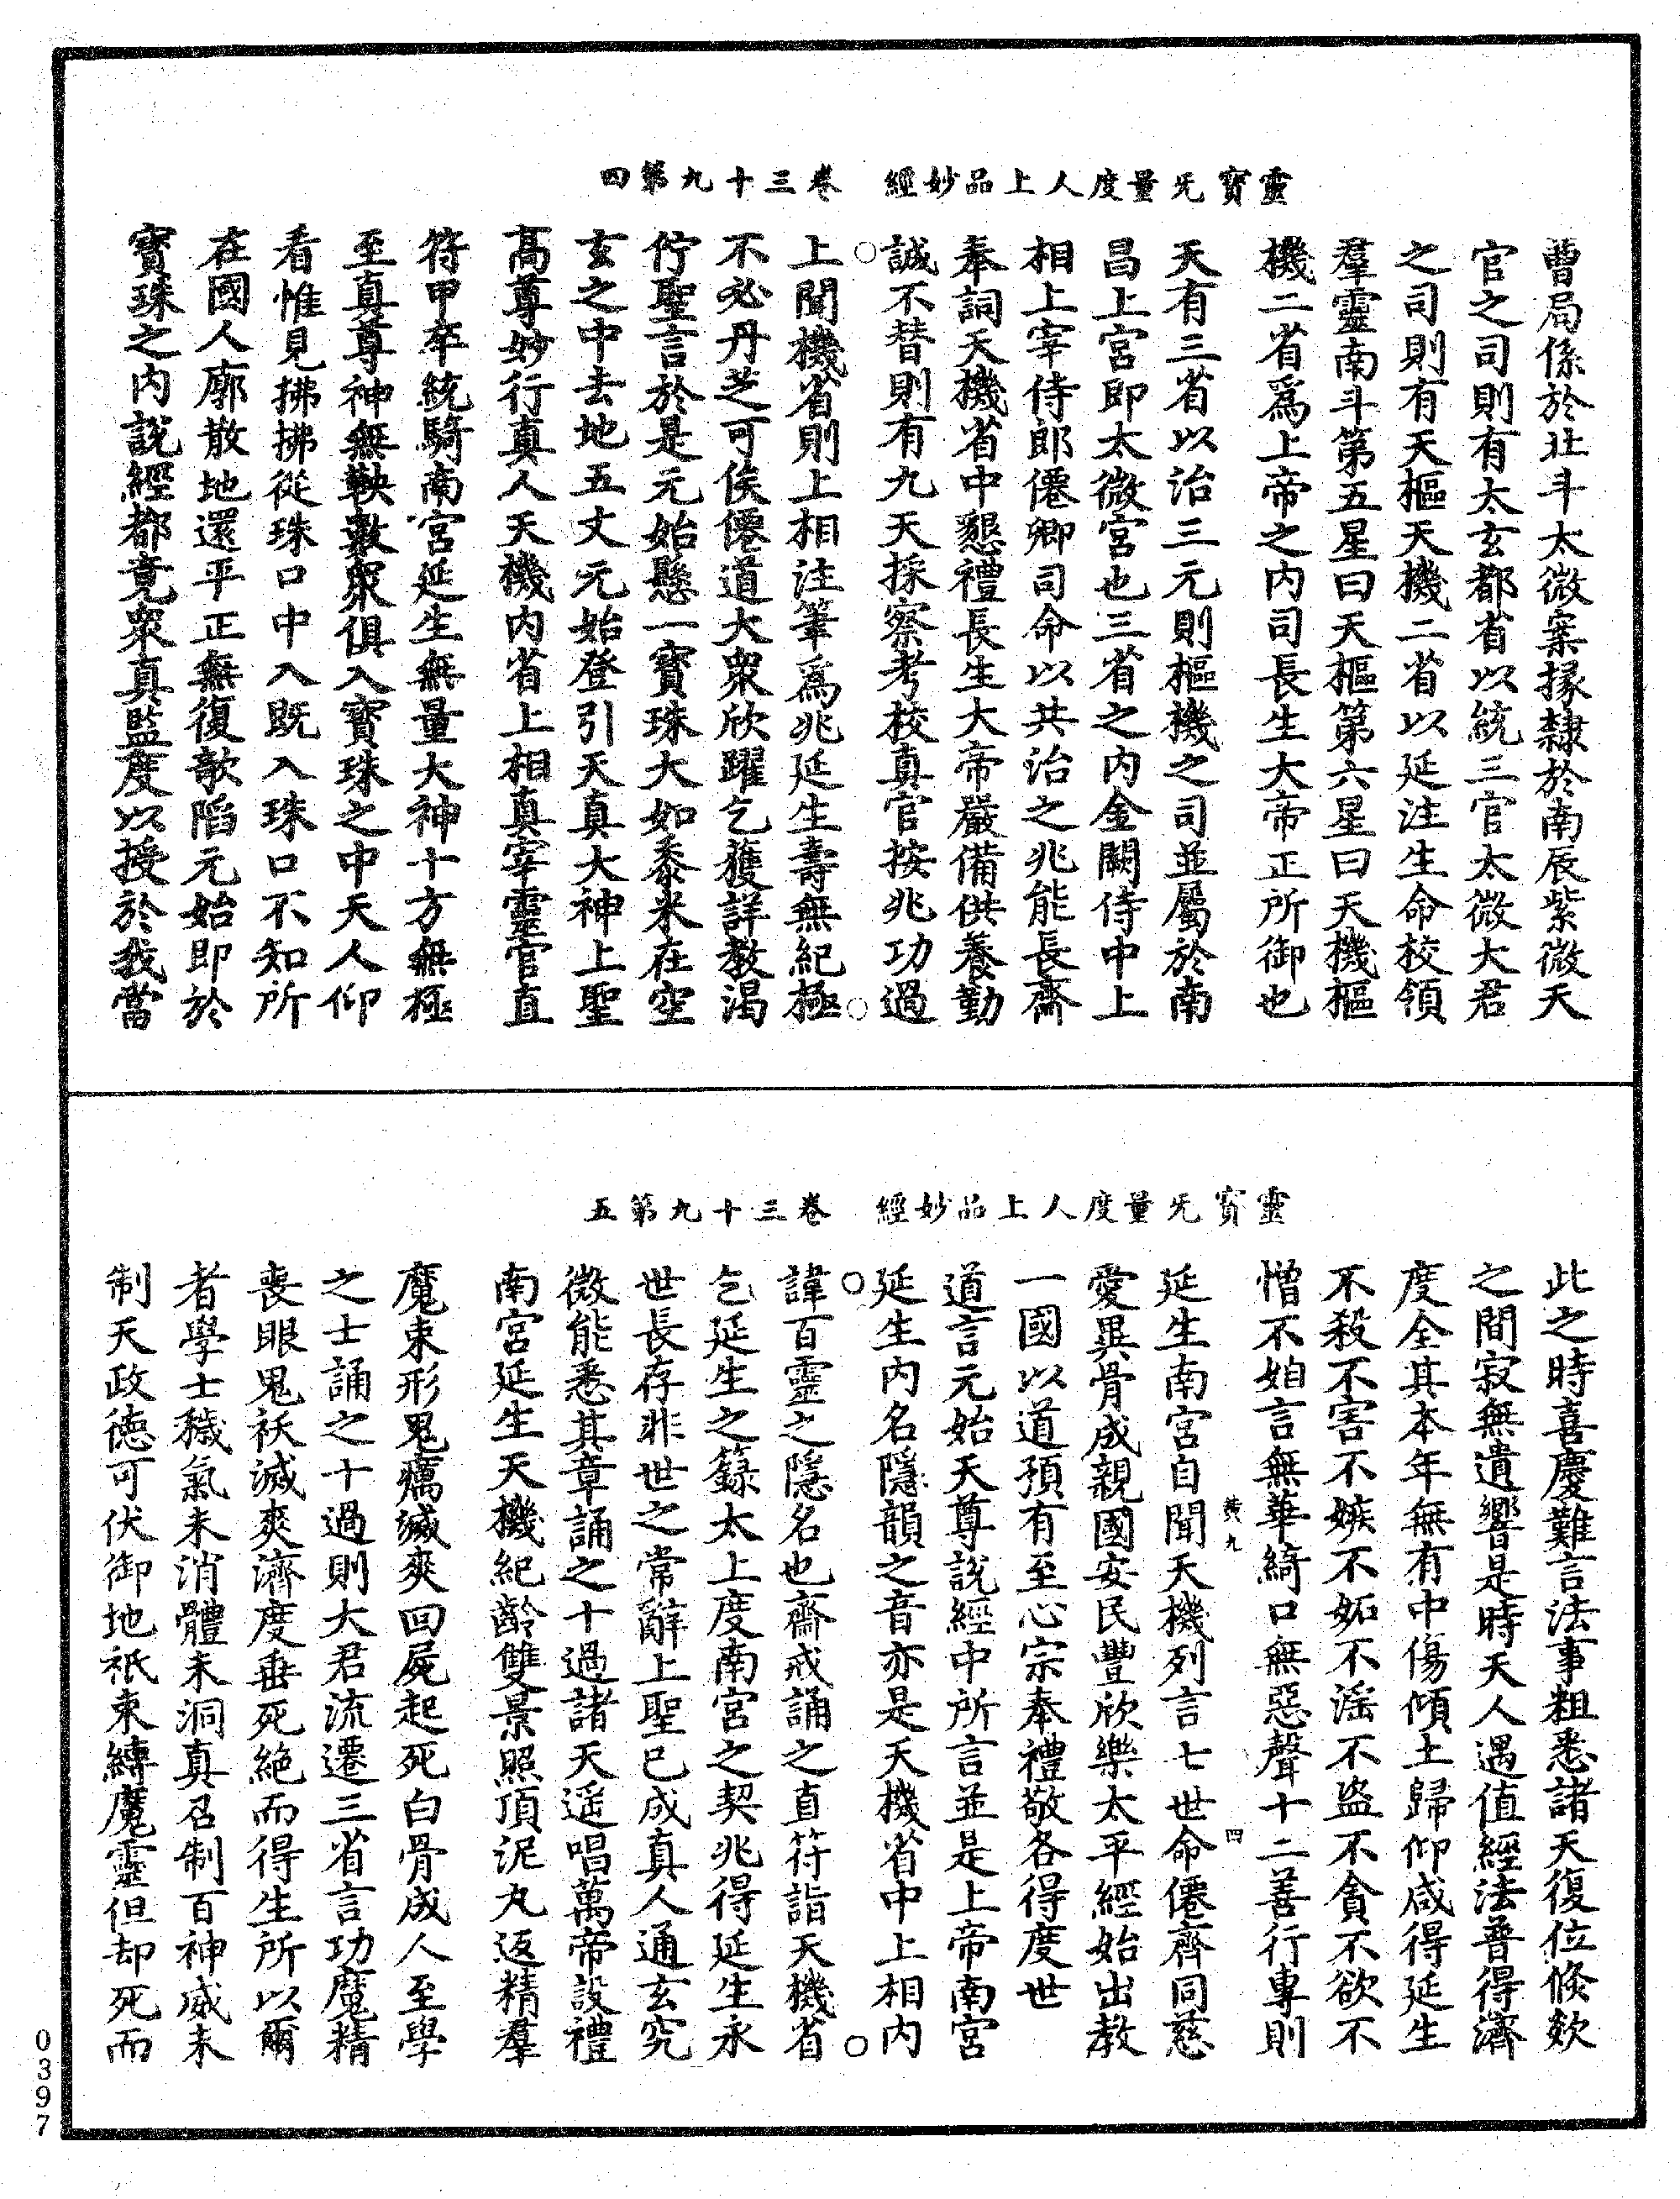 靈寶旡量度人上品妙經　卷三十九第四
曹局係於北斗太微案掾隸於南辰紫微天
官之司則有太玄都省以統三官太微大君
之司則有天樞天機二省以延注生命校領
羣靈南斗第五星曰天樞第六星曰天機樞
機二省爲上帝之内司長生大帝正所御也
天有三省以治三元則樞機之司並屬於南
昌上宮即太微宮也三省之内金闕侍中上
相上宰侍郎僊卿司命以共治之兆能長齋
奉詞天機省中懇禮長生大帝嚴備供養勤
誠不替則有九天採察考校真官按兆功過
上聞機省則上相注筆爲兆延生壽無紀極
不必丹芝可俟僊道大衆欣躍乞獲詳教渴
佇聖言於是元始懸一寶珠大如黍米在空
玄之中去地五丈元始登引天真大神上聖
高尊妙行真人天機内省上相真宰靈官直
符甲卒統騎南宮延生無量大神十方無極
至真尊神無鞅數衆俱入寶珠之中天人仰
看惟見拂拂從珠口中入既入珠口不知所
在國人廓散地還平正無復欹陷元始即於
寶珠之内說經都竟衆真監度以授於我當
靈寶旡量度人上品妙經　卷三十九第五
此之時喜慶難言法事粗悉諸天復位倏欻
之間寂無遺響是時天人遇值經法普得濟
度全其本年無有中傷傾土歸仰咸得延生
不殺不害不嫉不妬不淫不盜不貪不欲不
憎不㛿言無華綺口無惡聲十二善行專則
黃九　四
延生南宮自聞天機列言七世命僊齊同慈
愛異骨成親國安民豐欣樂太平經始出教
一國以道預有至心宗奉禮敬各得度世
道言元始天尊說經中所言並是上帝南宮
延生内名隱韻之音亦是天機省中上相内
諱百靈之隱名也齋戒誦之直符詣天機省
乞延生之籙太上度南宮之契兆得延生永
世長存非世之常辭上聖已成真人通玄究
微能悉其章誦之十過諸天遥唱萬帝設禮
南宮延生天機紀齡雙景照頂泥丸返精羣
魔束形鬼癘滅爽回屍起死白骨成人至學
之士誦之十過則大君流遷三省言功魔精
喪眼鬼祅滅爽濟度垂死絕而得生所以爾
者學士穢氣未消體未洞真召制百神威未
制天政德可伏御地祇束縛魔靈但却死而
0397